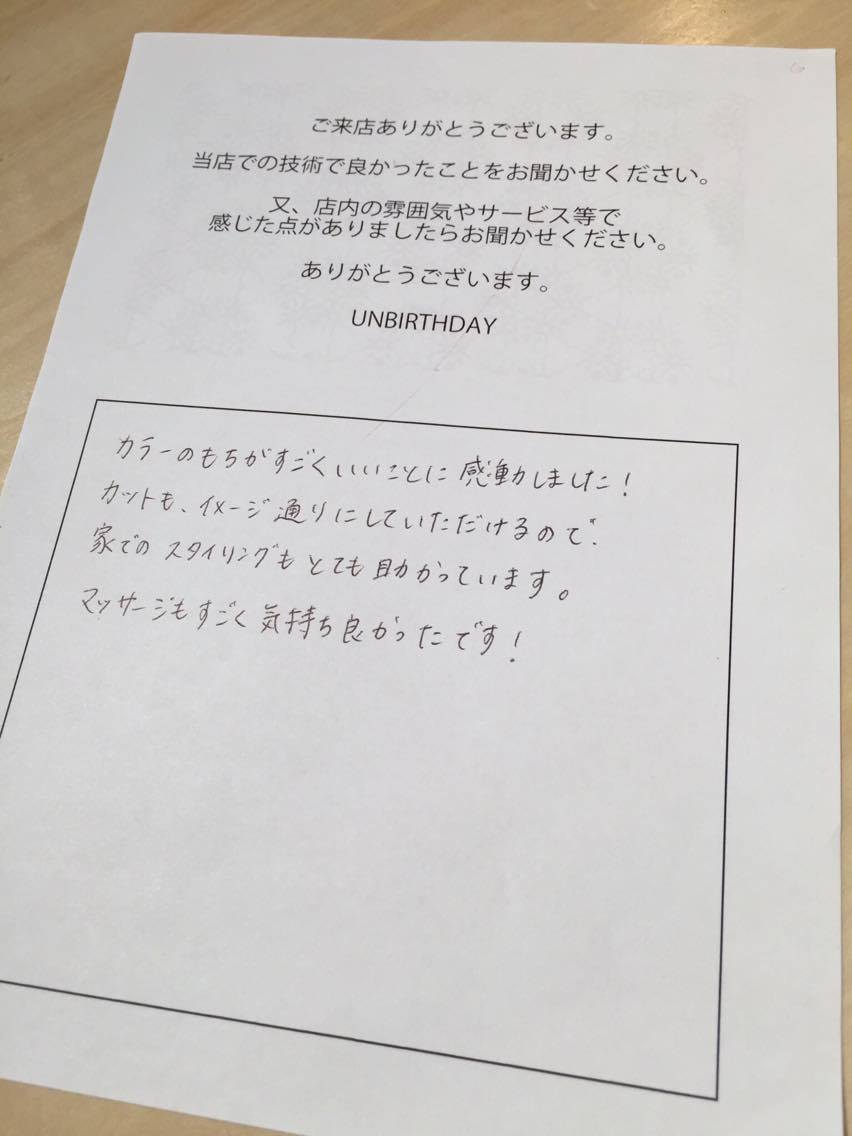 ご来店ありがとうございます。
当店での技術で良かったことをお聞かせください。
又、店内の雰囲気やサービス等で
感じた点がありましたらお聞かせください。
ありがとうございます。
UNBIRTHDAY
カラーのもちがすごくいいことに感動しました!
カットも、イメージ通りにしていただけるので、
家でのスタイリングもとても助かっています。
マッサージもすごく気持ち良かったです!